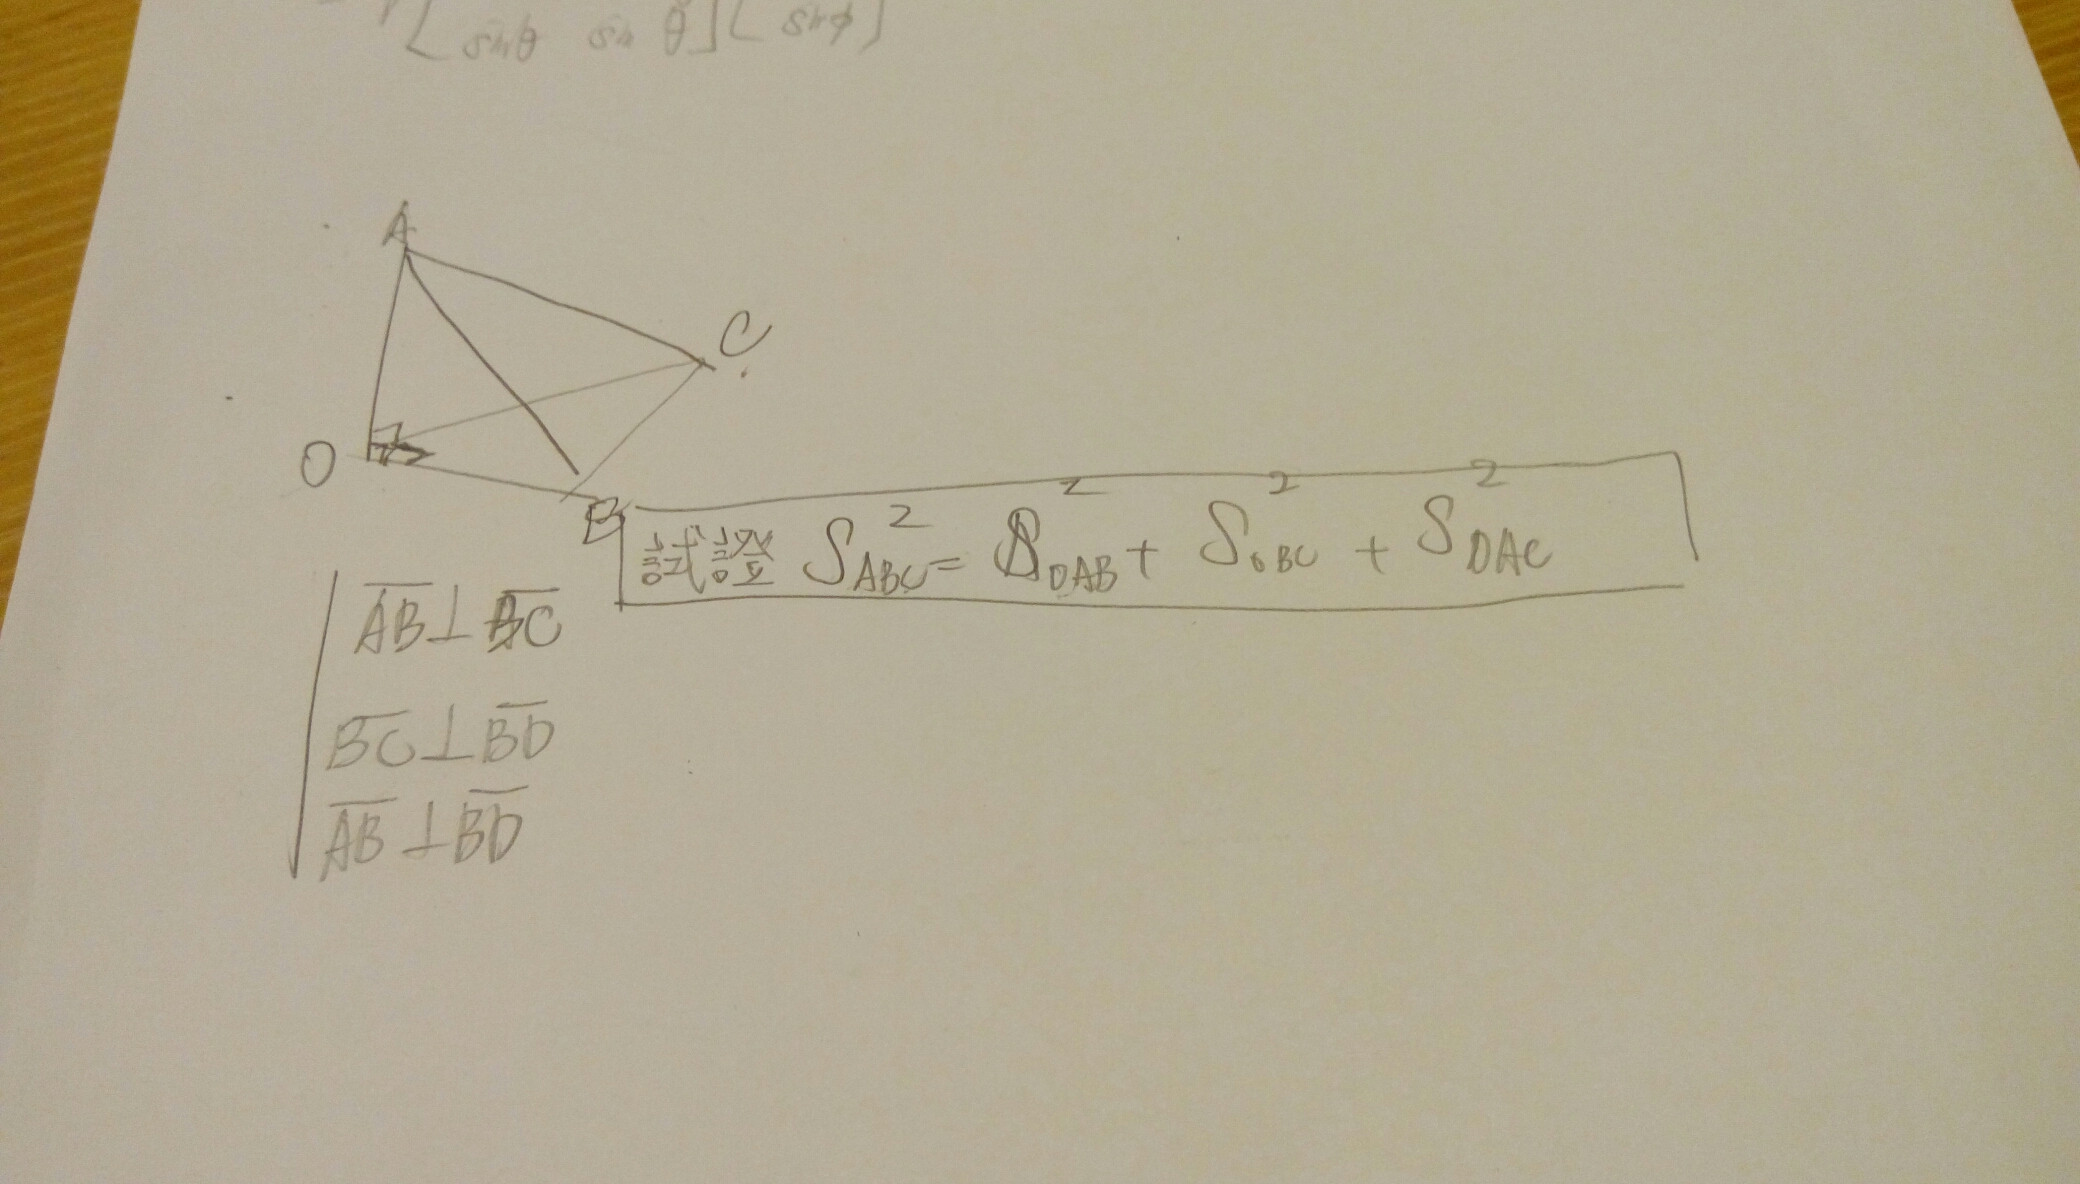 [sinθ sin θ][sinφ]
A
C
O
B
試證 S_ABC² = S_OAB² + S_OBC² + S_OAC²
A̅B̅⊥B̅C̅
B̅C̅⊥B̅D̅
A̅B̅⊥B̅D̅